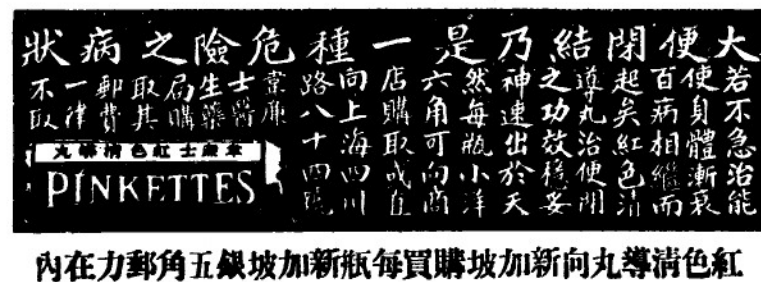 大便閉結乃是一種危險之病狀
若不急治能
使身體漸衰
百病相繼而
起矣紅色清
導丸治便閉
之功效穩妥
神速出於天
然每瓶小洋
六角可向商
店購取或直
向上海四川
路八十四號
韋廉
士醫
生藥
局購
取其
郵費
一律
不取
韋廉士紅色清導丸
PINKETTES
紅色清導丸向新加坡購買每瓶新加坡銀五角郵力在內